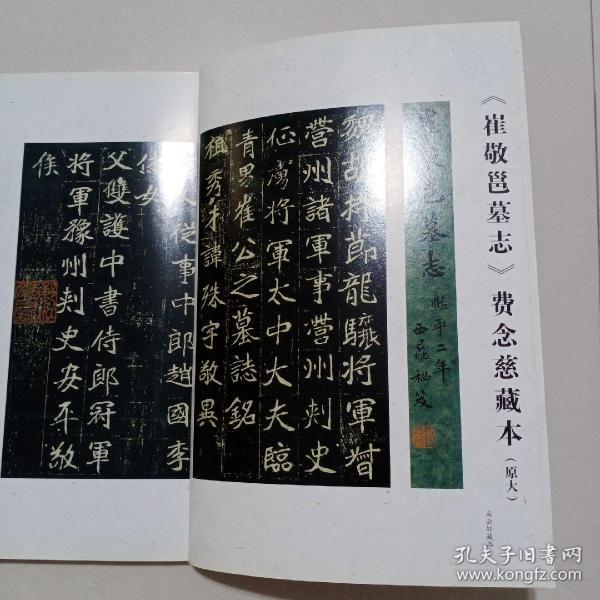 《崔敬邕墓志》费念慈藏本（原大）
邕墓志
熙平二年
西蠡秘笈
魏故持節龍驤將軍督
營州諸軍事營州刺史
征虜將軍太中大夫臨
青男崔公之墓誌銘
祖秀才諱殊字敬異
從事中郎趙國李
父雙護中書侍郎冠軍
將軍豫州刺史安平敬
侯
孔夫子旧书网
www.kongfz.com